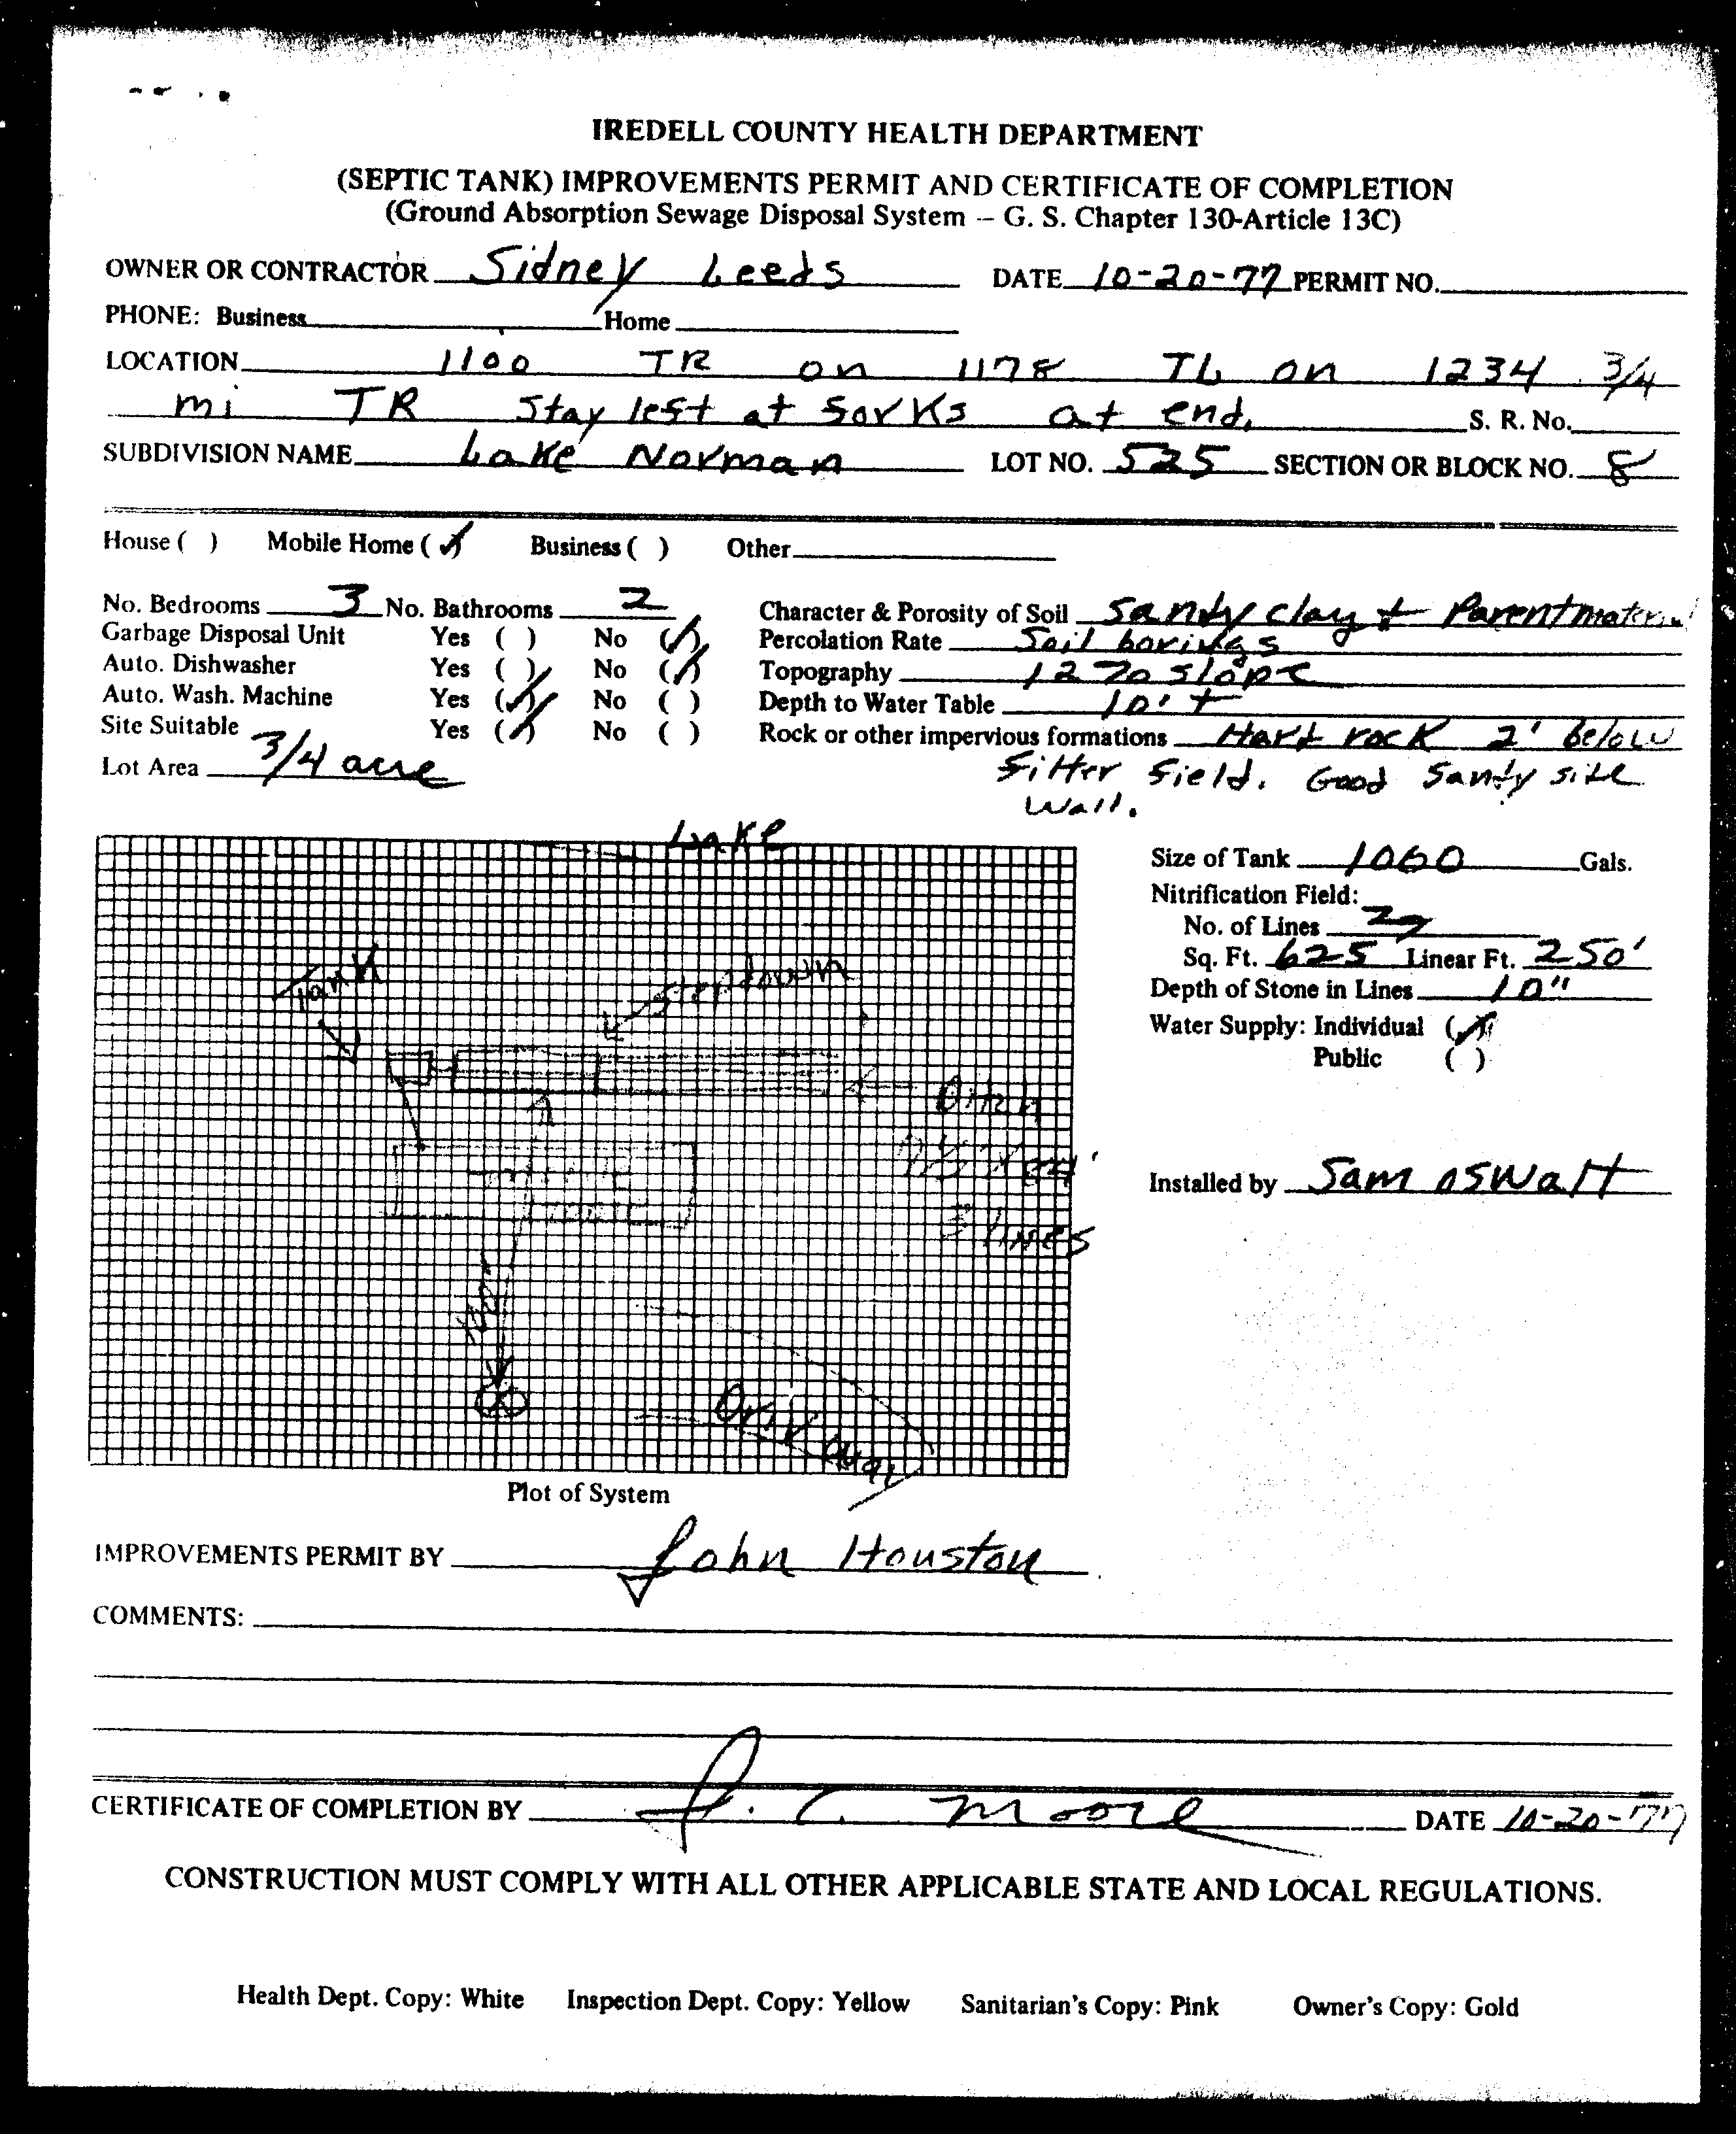 IREDELL COUNTY HEALTH DEPARTMENT
(SEPTIC TANK) IMPROVEMENTS PERMIT AND CERTIFICATE OF COMPLETION
(Ground Absorption Sewage Disposal System – G. S. Chapter 130-Article 13C)
OWNER OR CONTRACTOR Sidney Leeds DATE 10-20-77 PERMIT NO.
PHONE: Business Home
LOCATION 1100 TR on 1178 TL on 1234 3/4
mi TR Stay left at forks at end. S. R. No.
SUBDIVISION NAME Lake Norman LOT NO. 525 SECTION OR BLOCK NO. 8
House ( ) Mobile Home (✓) Business ( ) Other
No. Bedrooms 3 No. Bathrooms 2
Garbage Disposal Unit Yes ( ) No (✓)
Auto. Dishwasher Yes ( ) No (✓)
Auto. Wash. Machine Yes (✓) No ( )
Site Suitable Yes (✓) No ( )
Lot Area 3/4 acre
Character & Porosity of Soil Sandy clay + Parent material
Percolation Rate Soil borings
Topography 12% slope
Depth to Water Table 10' +
Rock or other impervious formations Hard rock 2' below
filter field. Good Sandy side
wall.
Lake
Tank
Stepdown
Ditch
lines
100'
Driveway
Plot of System
Size of Tank 1000 Gals.
Nitrification Field:
No. of Lines
Sq. Ft. 625 Linear Ft. 250'
Depth of Stone in Lines 10"
Water Supply: Individual (✓)
Public ( )
Installed by Sam Oswalt
IMPROVEMENTS PERMIT BY John Houston
COMMENTS:
CERTIFICATE OF COMPLETION BY Moore DATE 10-20-77
CONSTRUCTION MUST COMPLY WITH ALL OTHER APPLICABLE STATE AND LOCAL REGULATIONS.
Health Dept. Copy: White Inspection Dept. Copy: Yellow Sanitarian's Copy: Pink Owner's Copy: Gold